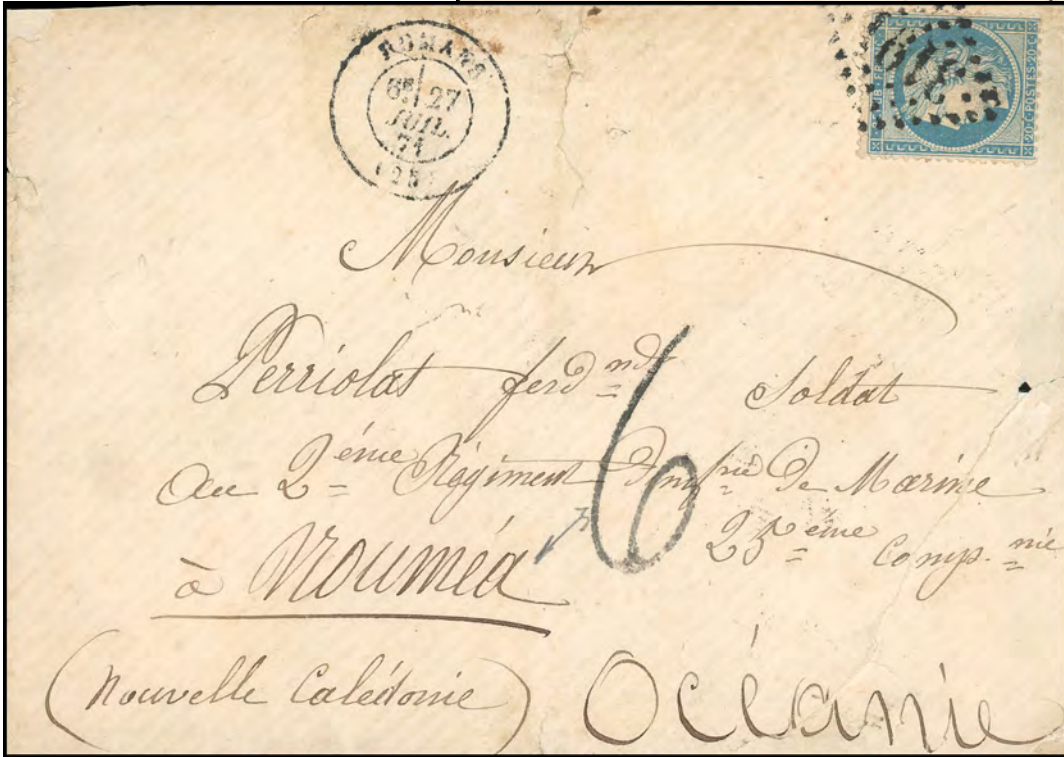 ROMANS
6E 27
JUIL.
71
(25)
20 C POSTES 20 C
Monsieur
Perriolat ferd nd Soldat
Au 2 ème Régiment d'inf rie de Marine
25 ème Comp. nie
à Nouméa
6
(Nouvelle Calédonie)
Océanie